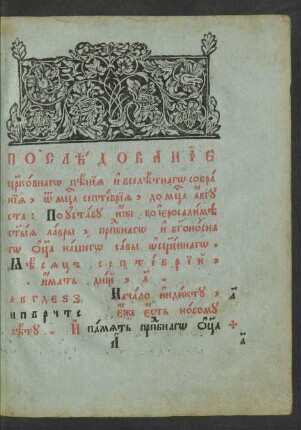 ПОСЛѢДОВАНІЕ
цр҃ковнагѡ пѣнїѧ и҆ вселѣтнагѡ собра
нїѧ, ѿ мц҃а септеврїѧ, до мц҃а авгу
ста: По уставу и҆же во і҆ерⷭ҇алимѣ
ст҃ыѧ лавры, прпⷣбнагѡ и҆ бг҃оносна
гѡ ѻц҃а нашегѡ савы ѡсщ҃еннагѡ.
Мѣсяцъ септеврїй,
и҆мать дни, л҃.
Начало индикту, а҃
є҆же є҆сть новому
лѣту. И҆ память прпⷣбнагѡ ѻц҃а